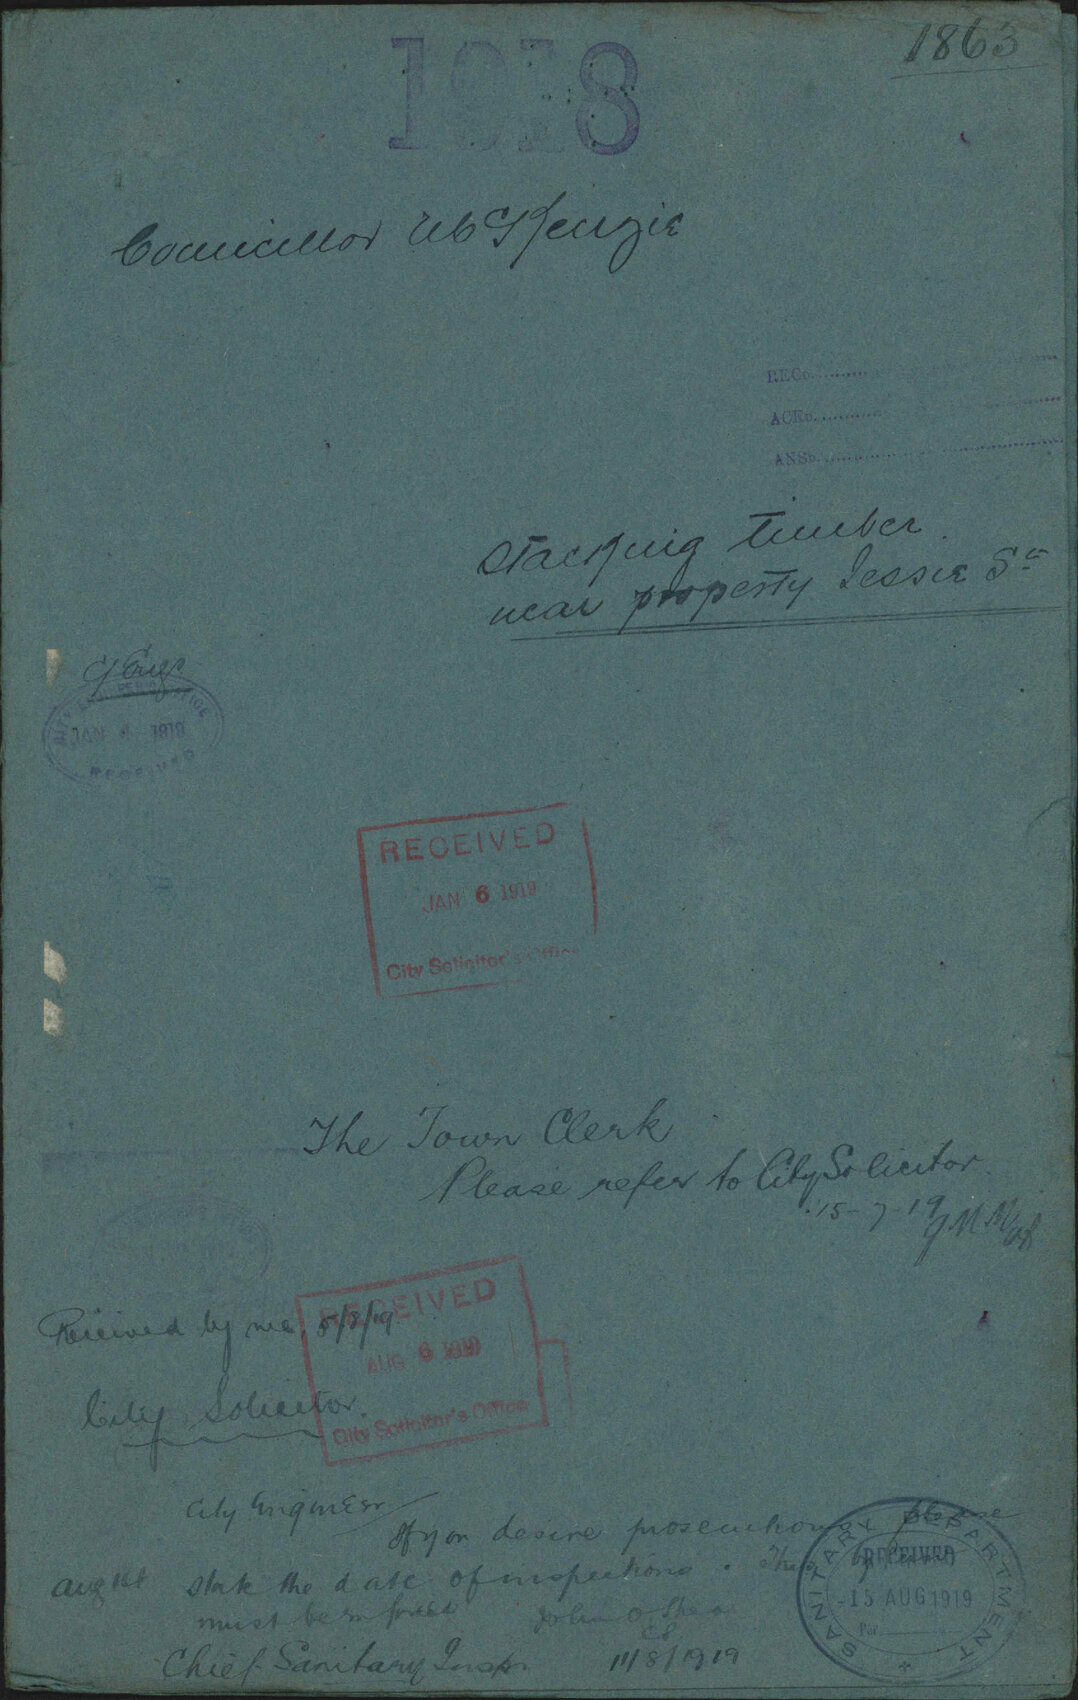 1863
1918
Councillor McKenzie
REC
ACK
ANS
Stacking timber
near property Jessie St
C/ Eng
CITY ENGINEER'S OFFICE
JAN 6 1919
RECEIVED
RECEIVED
JAN 6 1919
City Solicitor's Office
The Town Clerk
Please refer to City Solicitor
15-7-19
RECEIVED
Received by me, 5/8/19
AUG 6 1919
City Solicitor
City Solicitor's Office
City Engineer
If you desire prosecution please
state the date of inspections.
must be
John O'Shea
CS
11/8/1919
Chief Sanitary Inspr
SANITARY DEPARTMENT
RECEIVED
15 AUG 1919
Per